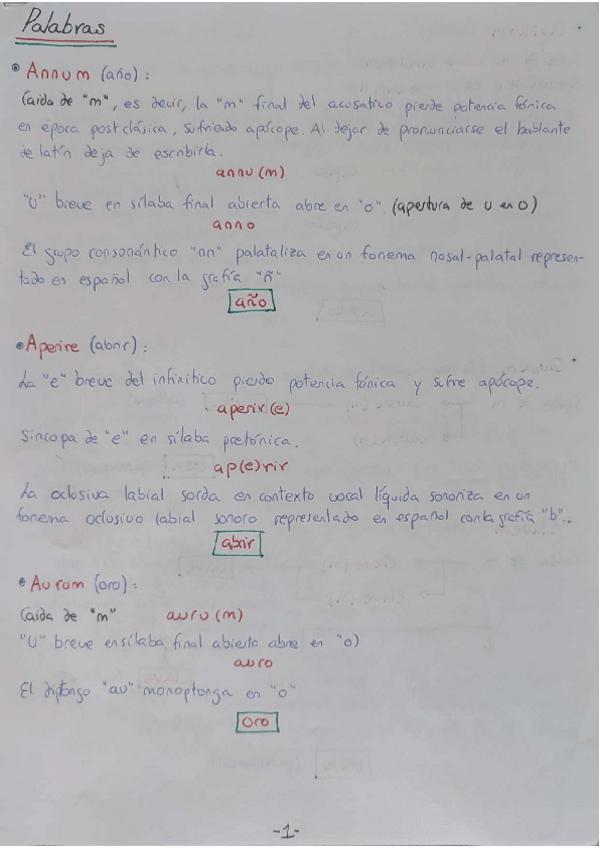 Palabras
• Annum (año):
Caída de "m", es decir, la "m" final del acusativo pierde potencia fónica
en época postclásica, sufriendo apócope. Al dejar de pronunciarse el hablante
de latín deja de escribirla.
annu(m)
"U" breve en sílaba final abierta abre en "o". (apertura de u en o)
anno
El grupo consonántico "nn" palataliza en un fonema nasal-palatal represen-
tado en español con la grafía "ñ"
año
• Aperire (abrir):
La "e" breve del infinitico pierde potencia fónica y sufre apócope.
aperir(e)
Síncopa de "e" en sílaba pretónica.
ap(e)rir
La oclusiva labial sorda en contexto vocal líquida sonoriza en un
fonema oclusivo labial sonoro representado en español con la grafía "b".
abrir
• Aurum (oro):
Caída de "m" auru(m)
"U" breve en sílaba final abierta abre en "o)
auro
El diptongo "au" monoptonga en "o"
oro
-1-